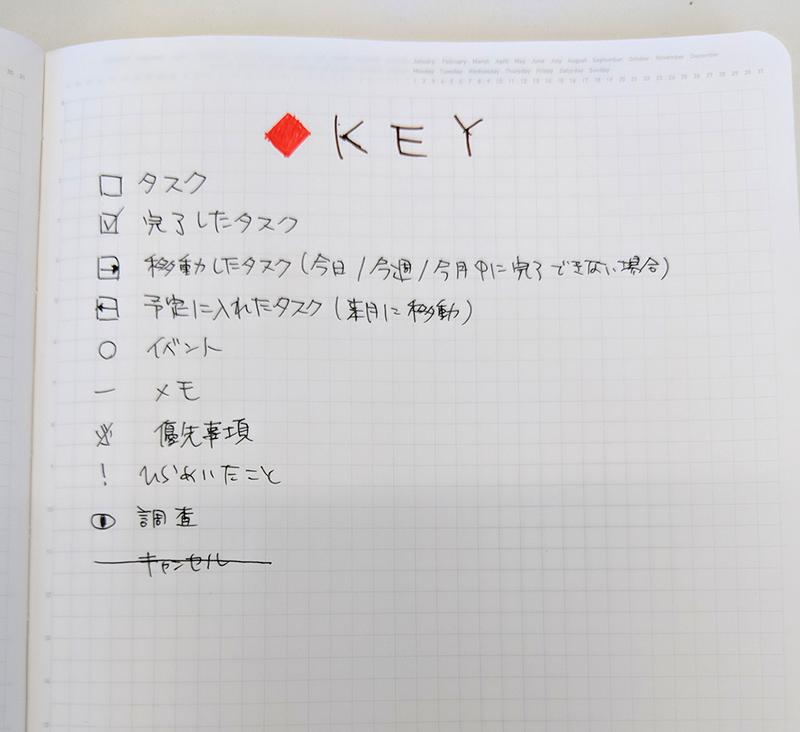 January February March April May June July August September October November December
Monday Tuesday Wednesday Thursday Friday Saturday Sunday
1 2 3 4 5 6 7 8 9 10 11 12 13 14 15 16 17 18 19 20 21 22 23 24 25 26 27 28 29 30 31
30 31
◆ KEY
□ タスク
☑ 完了したタスク
移動したタスク(今日/今週/今月中に完了できない場合)
予定に入れたタスク(来月に移動)
○ イベント
― メモ
優先事項
! ひらめいたこと
調査
キャンセル